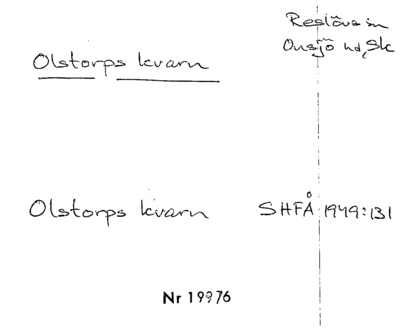 Reslövs sn
Onsjö hd, Sk
Olstorps kvarn
Olstorps kvarn SHFÅ 1949:131
Nr 19976